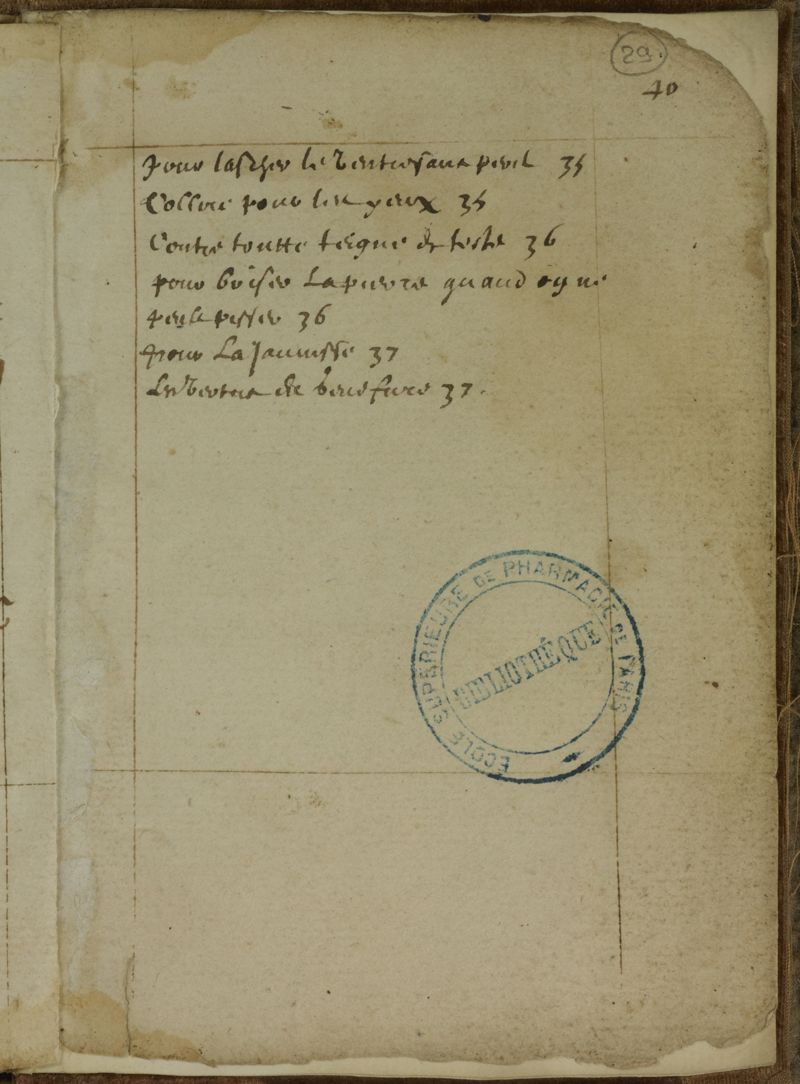 29.
40
pour lascher le ventre sans peril 35
Collire pour les yeux 35
Contre toutte teigne de teste 36
pour briser La pierre quand on ne
peult pisser 36
pour La Jaunisse 37
Les vertus de 37.
ECOLE SUPÉRIEURE DE PHARMACIE DE PARIS
BIBLIOTHÉQUE